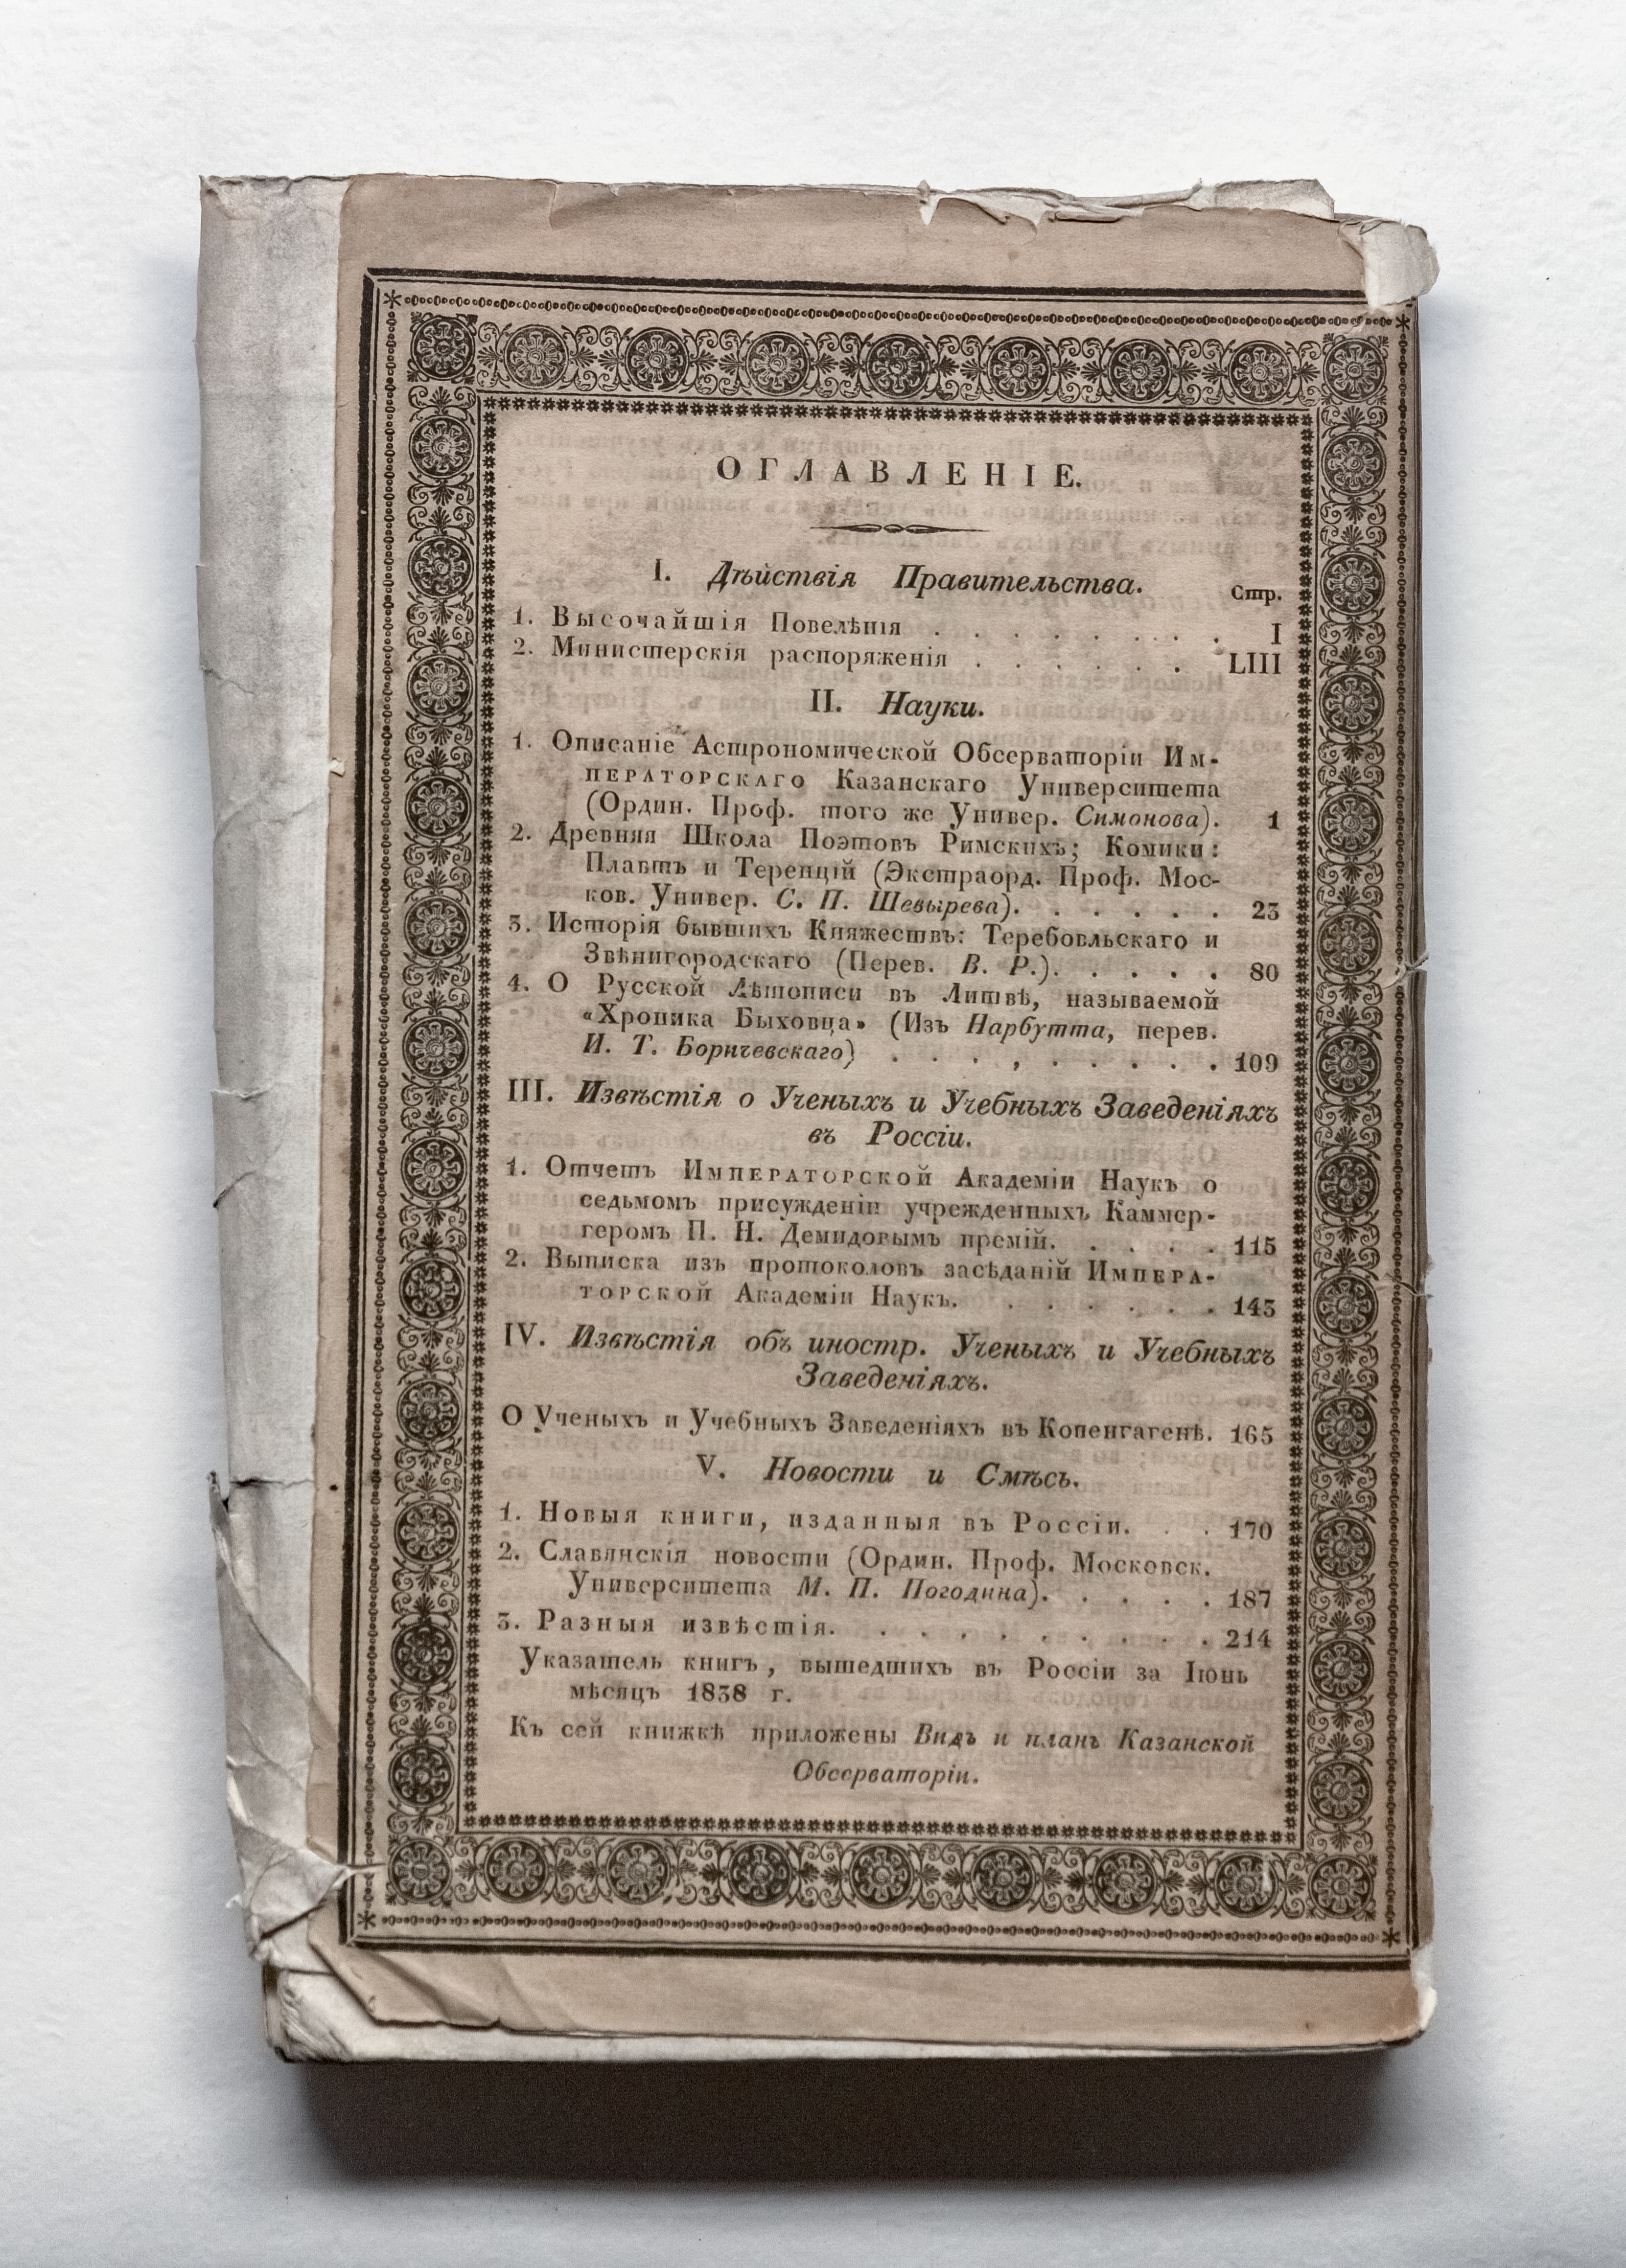 ОГЛАВЛЕНІЕ.
I. Дѣйствія Правительства.
Стр.
1. Высочайшія Повелѣнія . . . . . . . . I
2. Министерскія распоряженія . . . . . . LIII
II. Науки.
1. Описаніе Астрономической Обсерваторіи Им-
ператорскаго Казанскаго Университета
(Ордин. Проф. того же Универ. Симонова). 1
2. Древняя Школа Поэтовъ Римскихъ; Комики:
Плавтъ и Теренцій (Экстраорд. Проф. Мос-
ков. Универ. С. П. Шевырева). . . . . . 23
3. Исторія бывшихъ Княжествъ: Теребовльскаго и
Звѣнигородскаго (Перев. В. Р.). . . . . 80
4. О Русской Лѣтописи въ Литвѣ, называемой
«Хроника Быховца» (Изъ Нарбутта, перев.
И. Т. Боричевскаго) . . . . . . . . 109
III. Извѣстія о Ученыхъ и Учебныхъ Заведеніяхъ
въ Россіи.
1. Отчетъ Императорской Академіи Наукъ о
седьмомъ присужденіи учрежденныхъ Каммер-
геромъ П. Н. Демидовымъ премій. . . . . 115
2. Выписка изъ протоколовъ засѣданій Импера-
торской Академіи Наукъ. . . . . . . 143
IV. Извѣстія объ иностр. Ученыхъ и Учебныхъ
Заведеніяхъ.
О Ученыхъ и Учебныхъ Заведеніяхъ въ Копенгагенѣ. 165
V. Новости и Смѣсь.
1. Новыя книги, изданныя въ Россіи. . . 170
2. Славянскія новости (Ордин. Проф. Московск.
Университета М. П. Погодина). . . . . 187
3. Разныя извѣстія. . . . . . . . . 214
Указатель книгъ, вышедшихъ въ Россіи за Іюнь
мѣсяцъ 1838 г.
Къ сей книжкѣ приложены Видъ и планъ Казанской
Обсерваторіи.